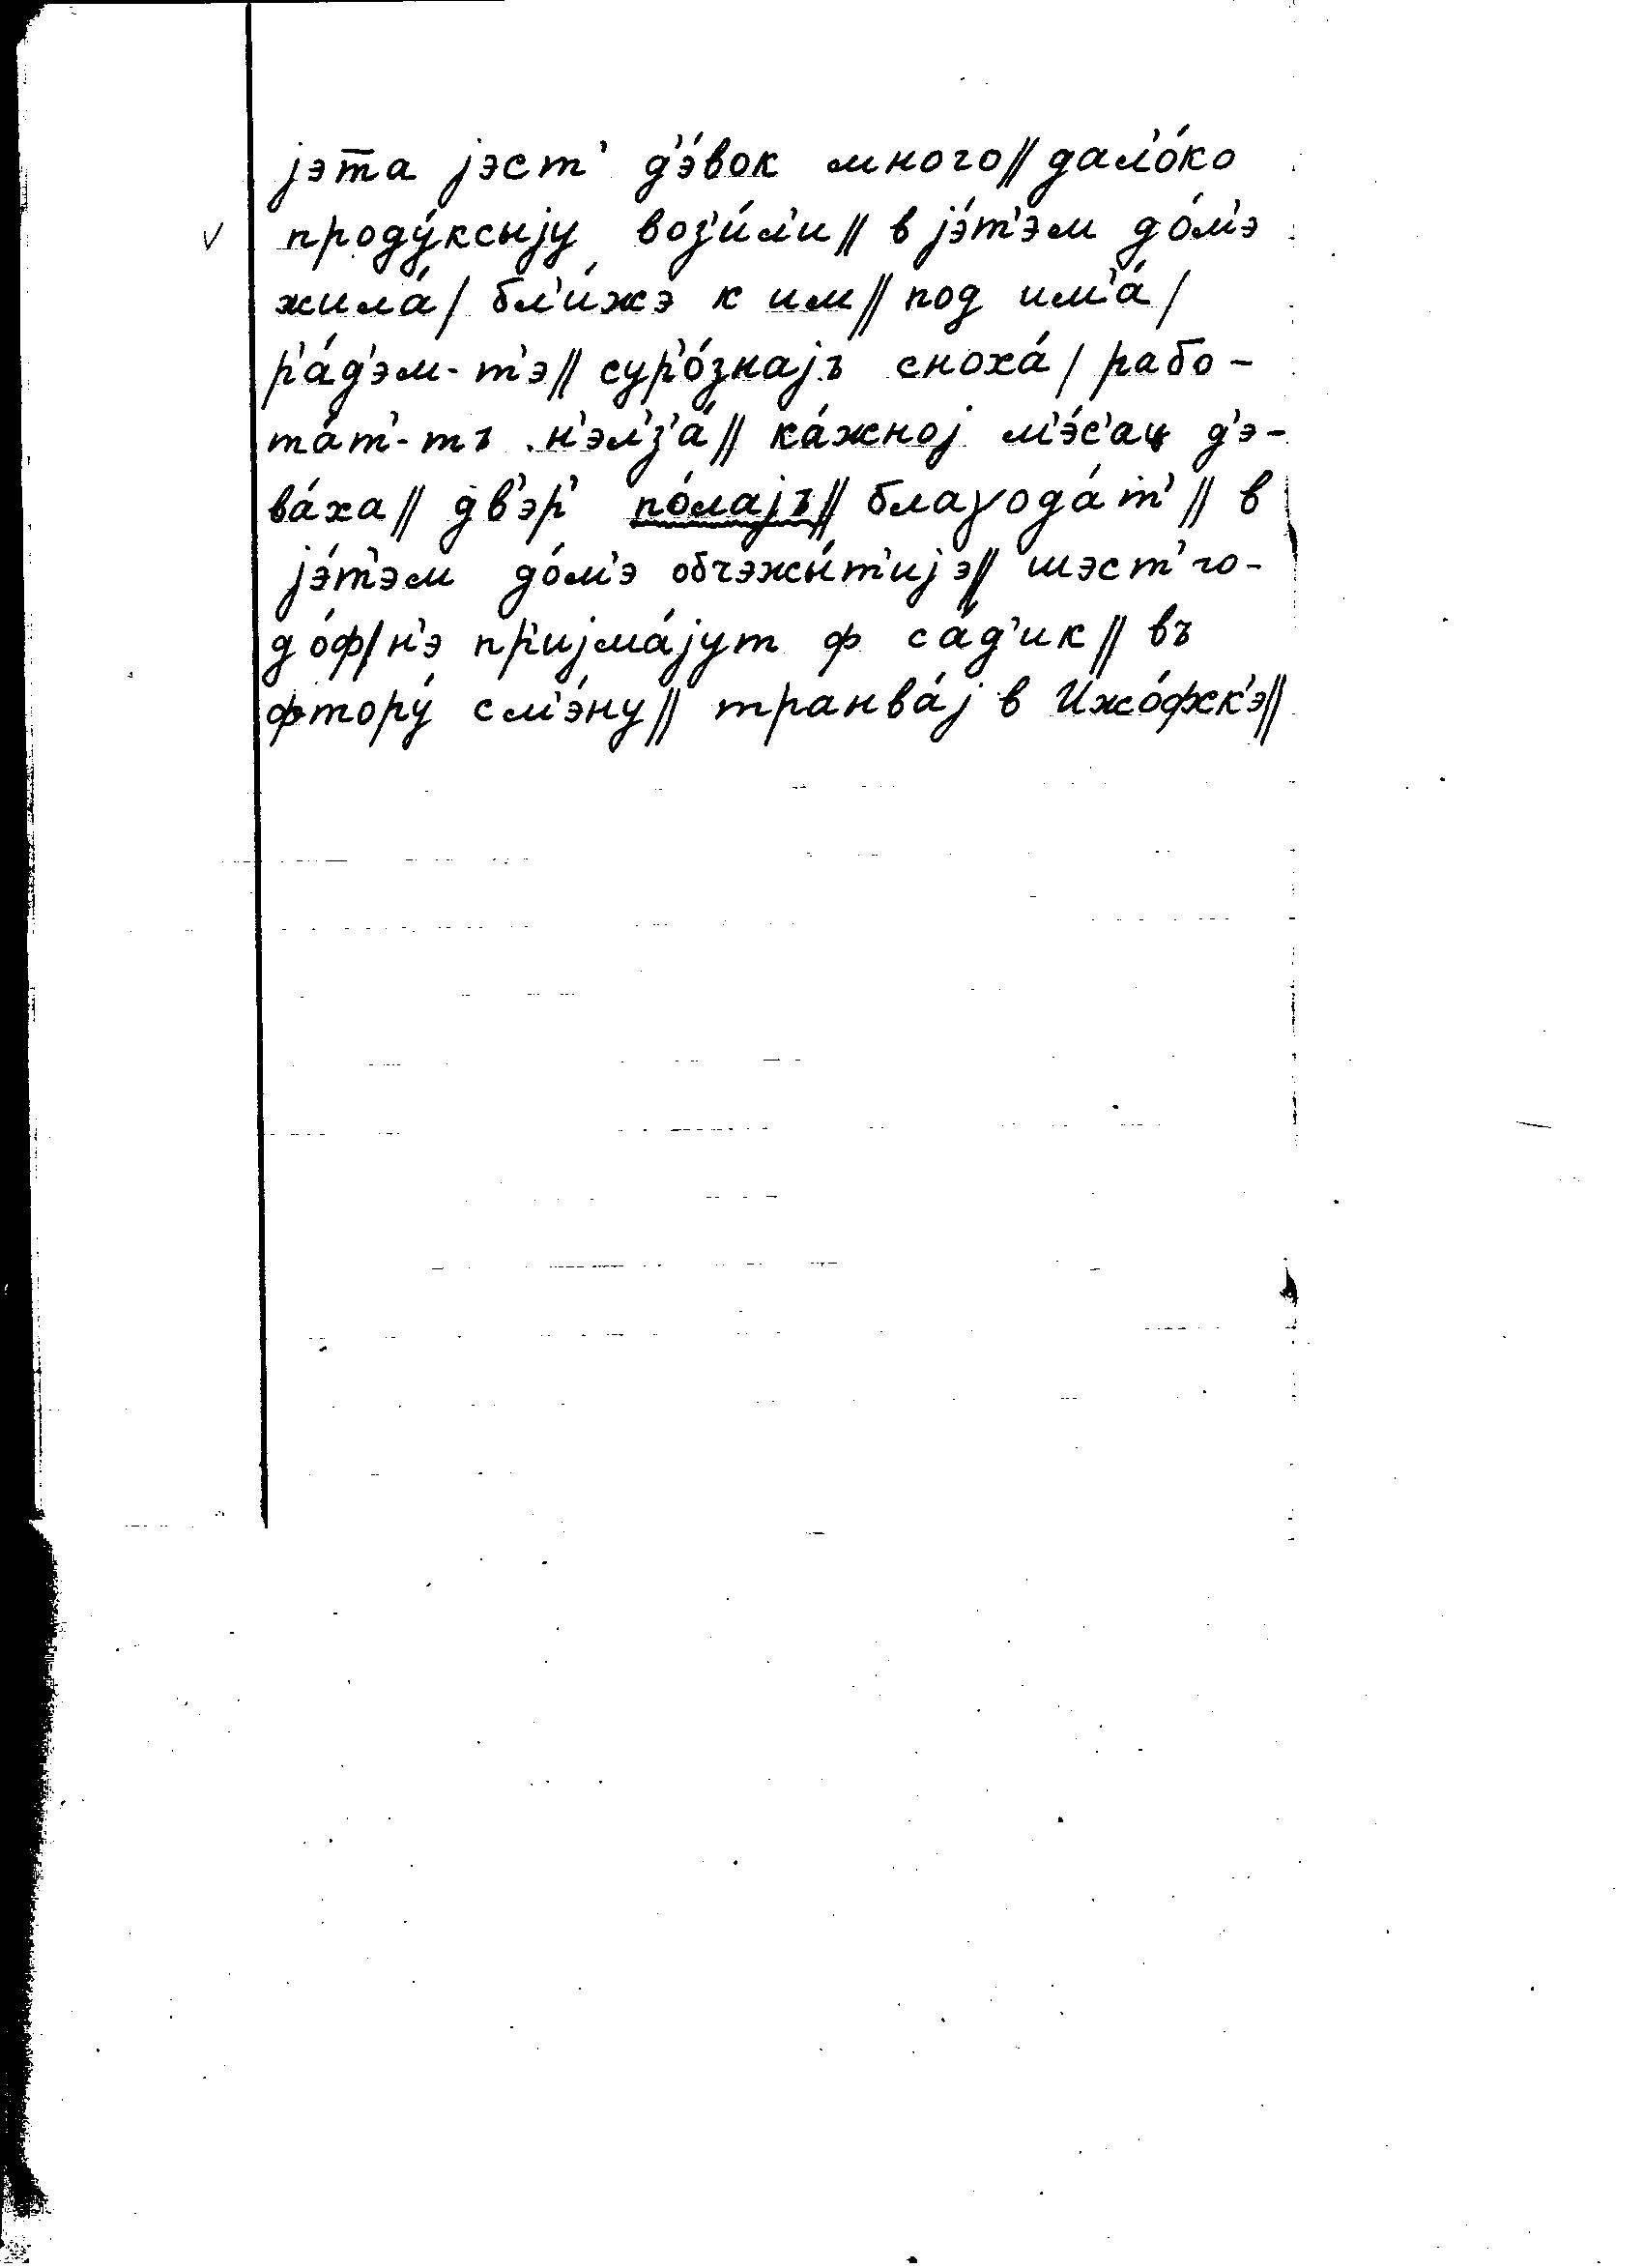 јэта јэст' д'э́вок много// дал'о́ко
v проду́ксыју воз'и́л'и// в јэ́т'эм до́м'э
жила́/ бл'и́жэ к им// под им'а́/
р'а́д'эм-т'э// сур'о́знајъ сноха́/ рабо-
та́т'-тъ н'эл'з'а́// ка́жној м'э́с'ац д'э-
ва́ха// дв'эр' по́лајъ// благода́т'// в
јэ́т'эм до́м'э обчэжы́т'ијэ// шэст' го-
до́ф/н'э пр'ијма́јут ф са́д'ик// въ
фтору́ см'э́ну// транва́ј в Ижо́фск'э//